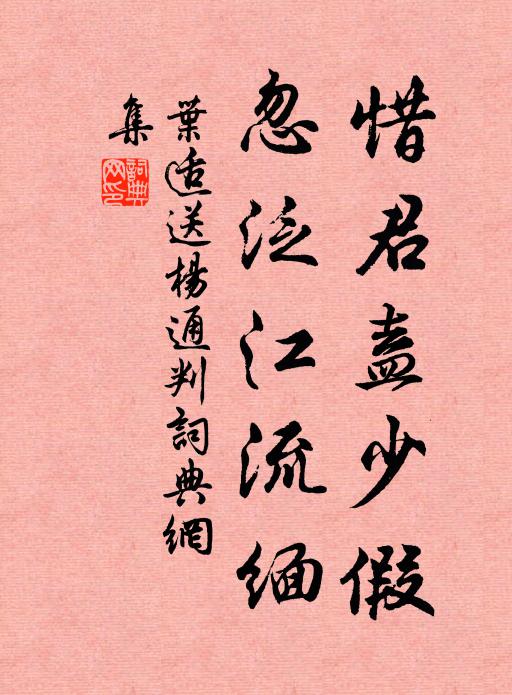 惜君盍少假
忽泛江流緬
葉适送楊通判詞典網
集
詞典網印